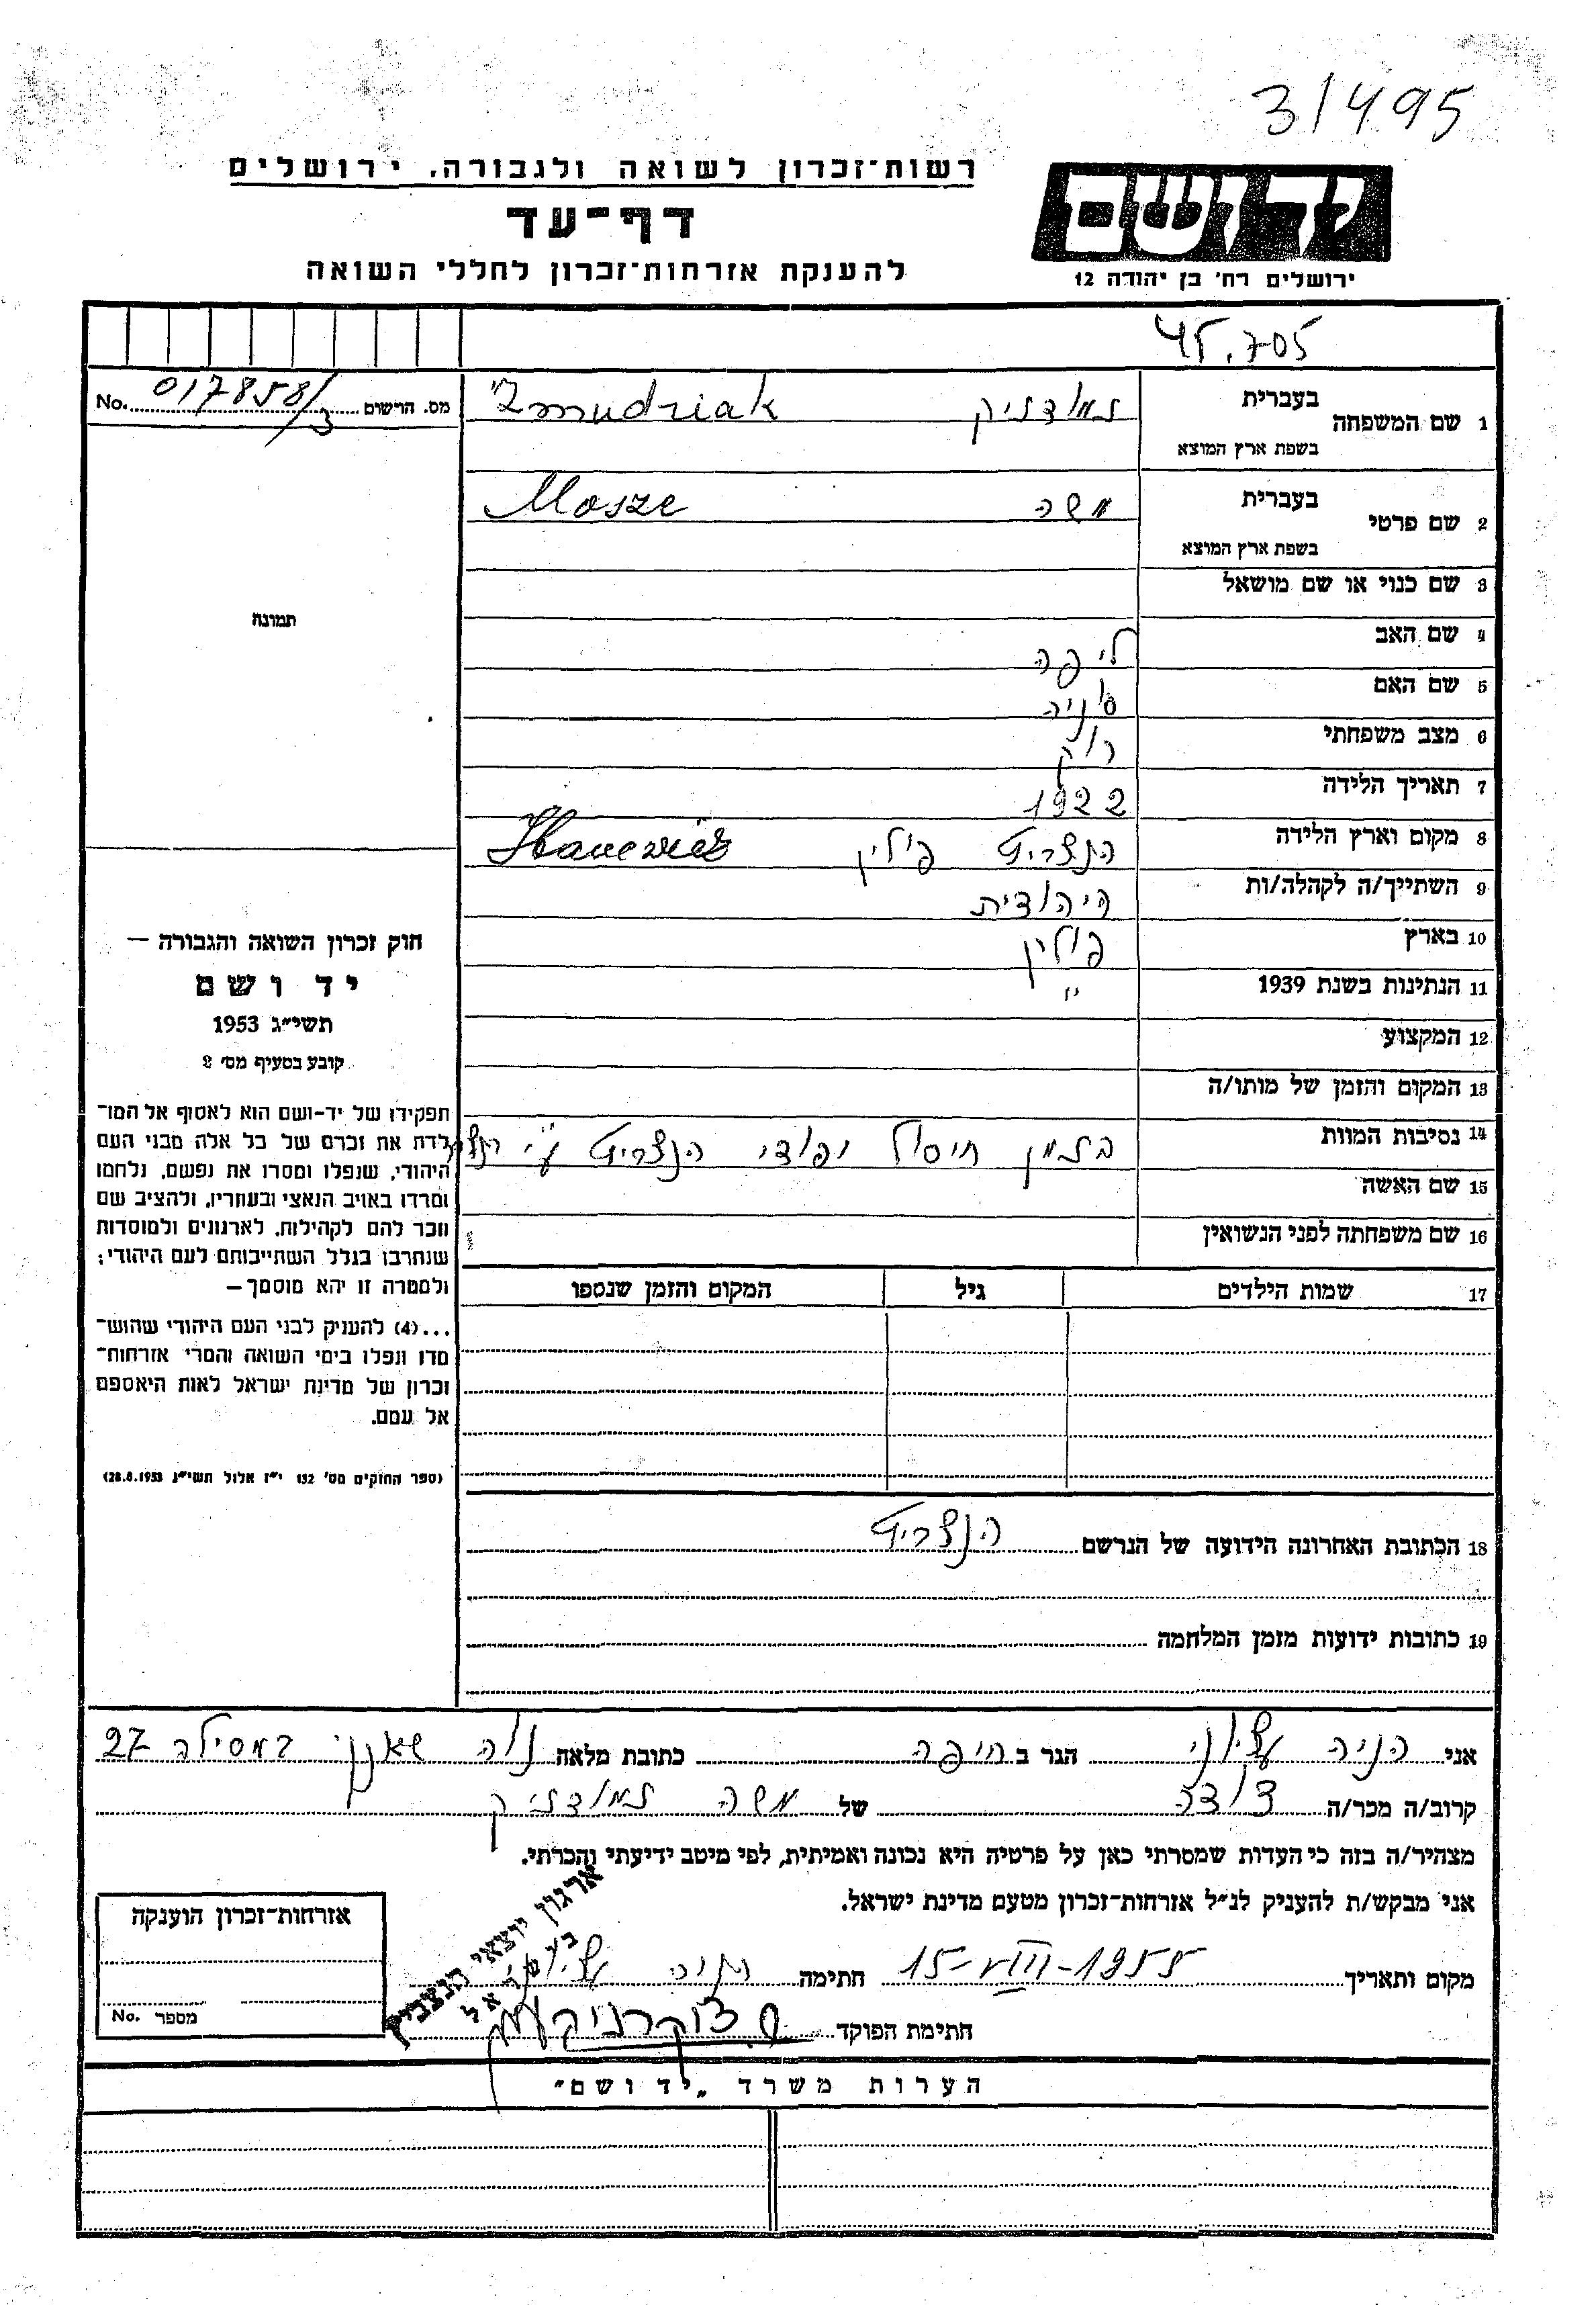 3/495
רשות־זכרון לשואה ולגבורה, ירושלים
דף־עד
להענקת אזרחות־זכרון לחללי השואה
יד ושם
ירושלים רח' בן יהודה 12
45.705
מס. הרשום 017858/3 No.
1 שם המשפחה בעברית זמודז'יק Żmudziak
בשפת ארץ המוצא
2 שם פרטי בעברית משה Mosze
בשפת ארץ המוצא
3 שם כנוי או שם מושאל
4 שם האב ליפה
5 שם האם סוניה
6 מצב משפחתי רווק
7 תאריך הלידה 1922
8 מקום וארץ הלידה הנצביט פולין
9 השתייך/ה לקהלה/ות היהודית
10 בארץ פולין
11 הנתינות בשנת 1939 "
12 המקצוע
13 המקום והזמן של מותו/ה
14 נסיבות המוות בזמן חיסול יהודי הנצביט ע"י
15 שם האשה
16 שם משפחתה לפני הנשואין
17 שמות הילדים גיל המקום והזמן שנספו
18 הכתובת האחרונה הידועה של הנרשם הנצביט
19 כתובות ידועות מזמן המלחמה
תמונה
חוק זכרון השואה והגבורה —
יד ושם
תשי״ג 1953
קובע בסעיף מס׳ 2
תפקידו של יד־ושם הוא לאסוף אל המו־
לדת את זכרם של כל אלה מבני העם
היהודי, שנפלו ומסרו את נפשם, נלחמו
ומרדו באויב הנאצי ובעוזריו, ולהציב שם
וזכר להם לקהילות, לארגונים ולמוסדות
שנחרבו בגלל השתייכותם לעם היהודי;
ולמטרה זו יהא מוסמך —
...(4) להעניק לבני העם היהודי שהוש־
מדו ונפלו בימי השואה והמרי אזרחות־
זכרון של מדינת ישראל לאות היאספם
אל עמם.
(ספר החוקים מס׳ 132 י״ז אלול תשי״ג 28.8.1953)
אני הניה הגר ב חיפה כתובת מלאה נוה שאנן המסילה 27
קרוב/ה מכר/ה דודה של משה זמודז'יק
מצהיר/ה בזה כי העדות שמסרתי כאן על פרטיה היא נכונה ואמיתית, לפי מיטב ידיעתי והכרתי.
אני מבקש/ת להעניק לנ״ל אזרחות־זכרון מטעם מדינת ישראל.
מקום ותאריך 15-VIII-1955 חתימה הניה
חתימת הפוקד
ארגון יוצאי הנצביץ
בישראל
אזרחות־זכרון הוענקה
מספר No.
הערות משרד „יד ושם״